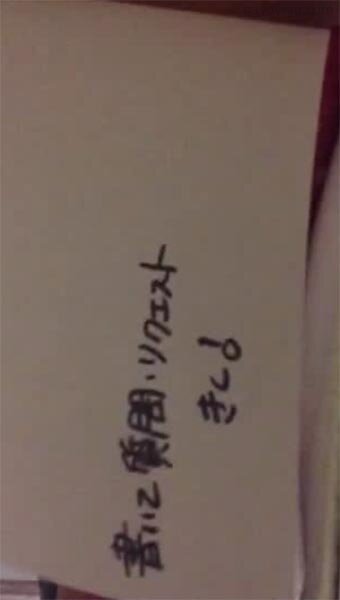 書いて質問・リクエスト
きく!